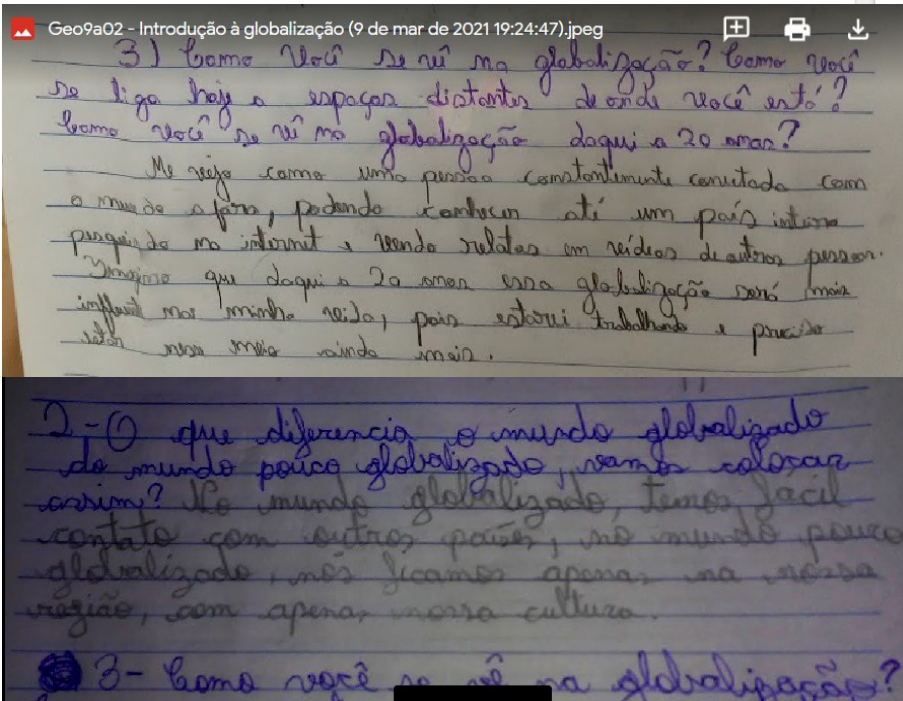 Geo9a02 - Introdução à globalização (9 de mar de 2021 19:24:47).jpeg
3) Como você se vê na globalização? Como você
se liga hoje a espaços distantes de onde você está?
Como você se vê na globalização daqui a 20 anos?
Me vejo como uma pessoa constantemente conectada com
o mundo a fora, podendo conhecer até um país inteiro
na internet e vendo relatos em vídeos de outras pessoas.
Imagino que daqui a 20 anos essa globalização será mais
na minha vida, pois estarei trabalhando e preciso
nesse meio ainda mais.
2-O que diferencia o mundo globalizado
do mundo pouco globalizado, vamos colocar
assim? No mundo globalizado, temos fácil
contato com outros países, no mundo pouco
globalizado, nós ficamos apenas na nossa
região, com apenas nossa cultura.
3- Como você se vê na globalização?